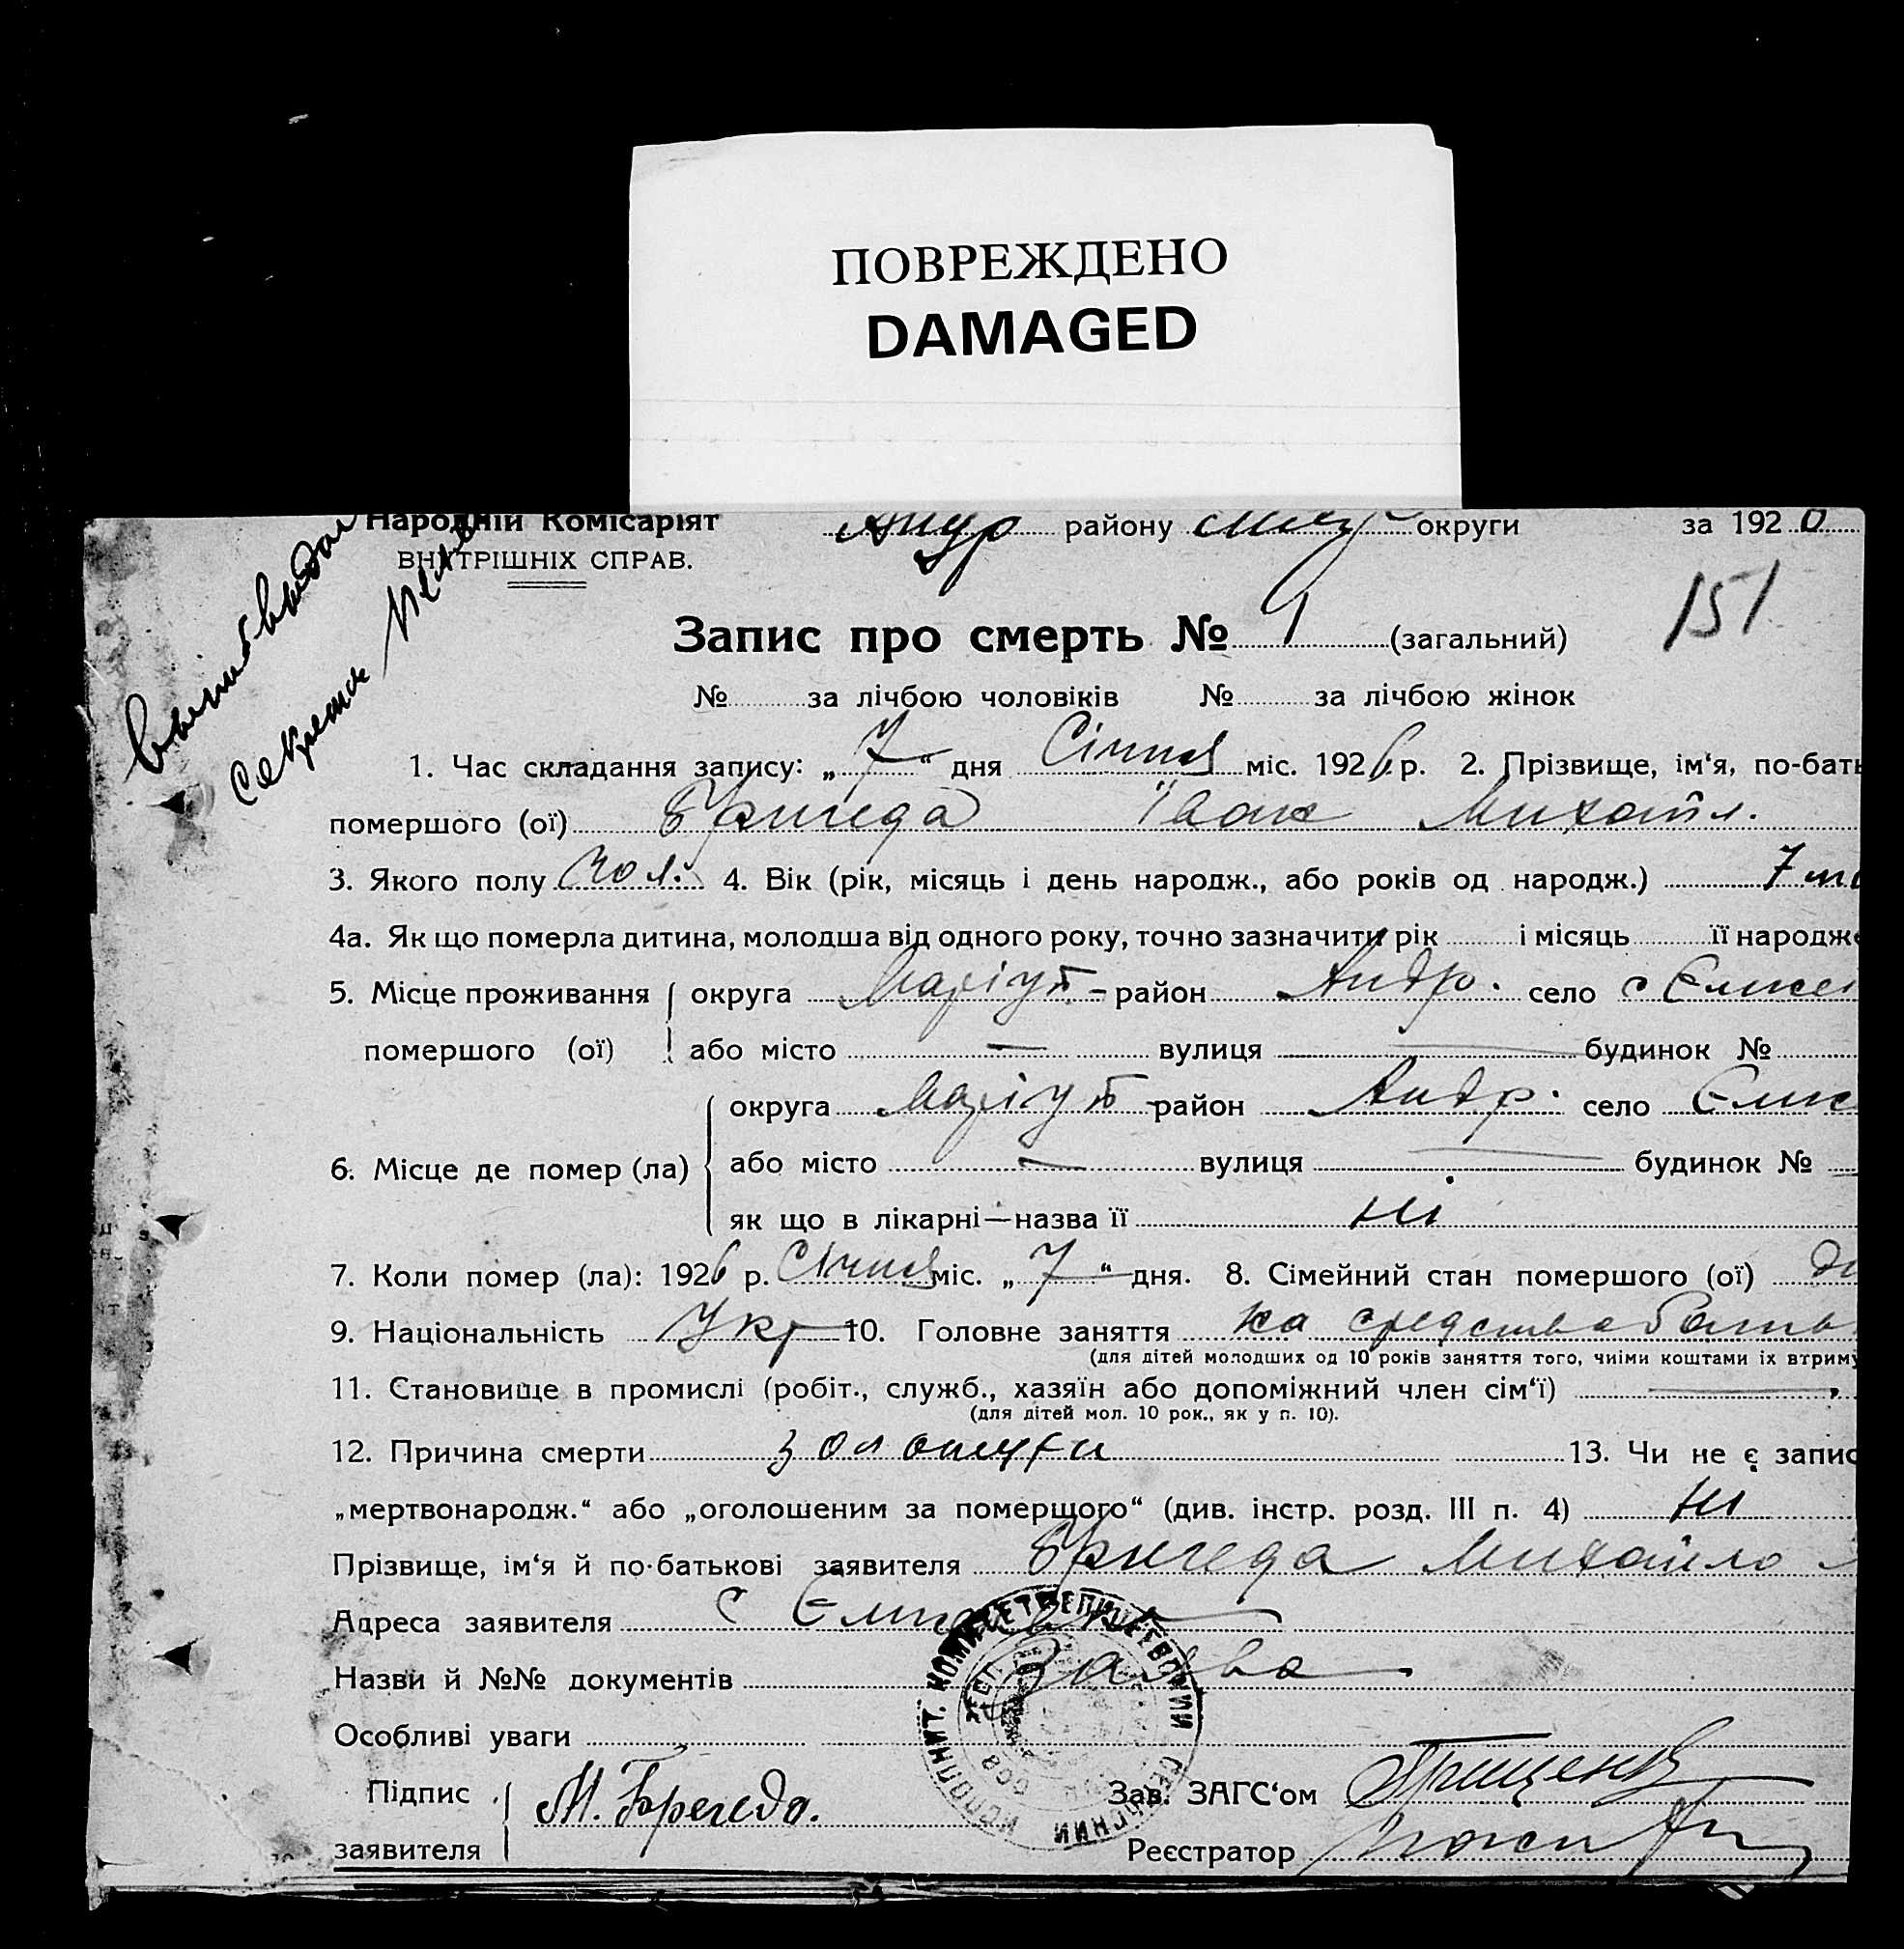 ПОВРЕЖДЕНО
DAMAGED
Народній Комісаріят району округи за 192
ВНУТРІШНІХ СПРАВ.
151
Запис про смерть № 1 (загальний)
№ за лічбою чоловіків № за лічбою жінок
1. Час складання запису: „7“ дня Січня міс. 1926 р. 2. Прізвище, ім‘я, по-бать
помершого (ої) Іван Михайл.
3. Якого полу чол. 4. Вік (рік, місяць і день народж., або років од народж.) 7
4а. Як що померла дитина, молодша від одного року, точно зазначити рік і місяць її народж
5. Місце проживання округа Маріуп. район Андр. село с
помершого (ої) або місто — вулиця — будинок №
округа Маріуп район Андр. село
6. Місце де помер (ла) або місто — вулиця — будинок №
як що в лікарні—назва її ні
7. Коли помер (ла): 1926 р. Січня міс. „7“ дня. 8. Сімейний стан помершого (ої)
9. Національність Укр 10. Головне заняття на средства бать
(для дітей молодших од 10 років заняття того, чиїми коштами їх втриму
11. Становище в промислі (робіт., служб., хазяїн або допоміжний член сім‘ї) —
(для дітей мол. 10 рок., як у п. 10).
12. Причина смерти золотухи 13. Чи не є запис
„мертвонародж.“ або „оголошеним за померщого“ (див. інстр. розд. III п. 4) ні
Прізвище, ім‘я й по-батькові заявителя Михайло
Адреса заявителя с
Назви й №№ документів Заява
Особливі уваги
Підпис М. Зав. ЗАГС‘ом
заявителя Реєстратор